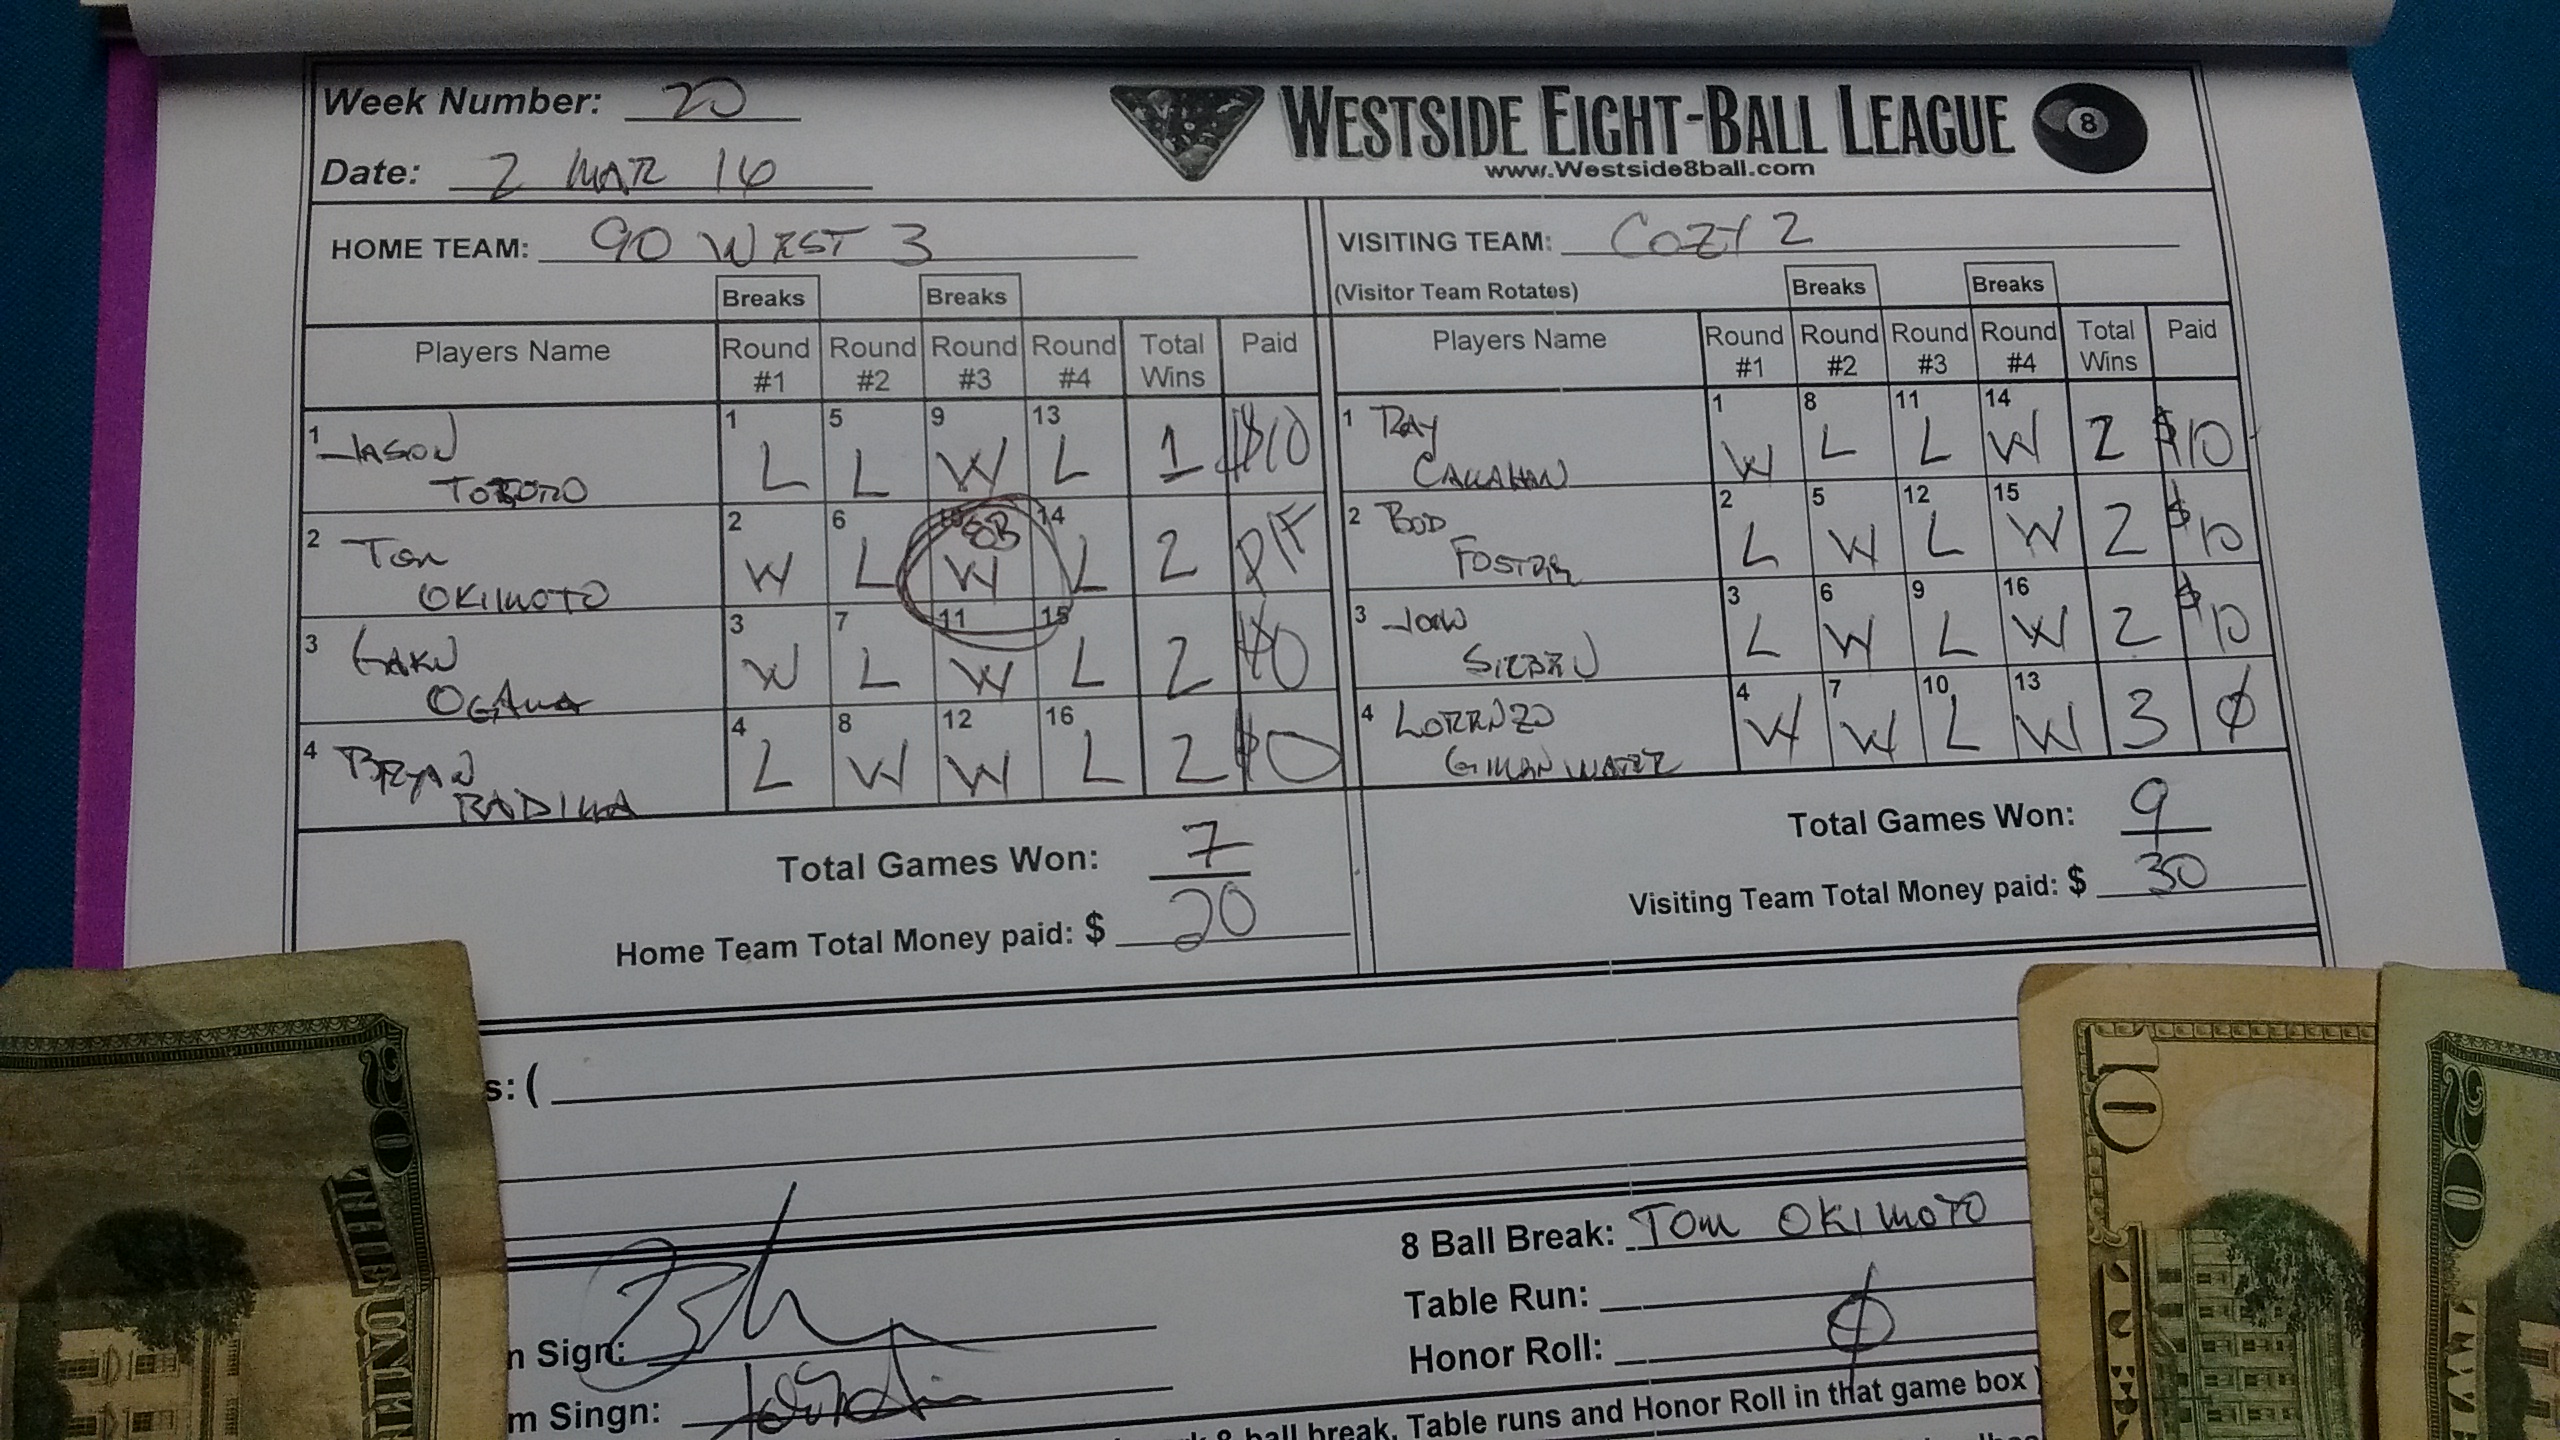 Week Number: 20
WESTSIDE EIGHT-BALL LEAGUE 8
www.Westside8ball.com
Date: 2 MAR 16
HOME TEAM: 90 WEST 3
VISITING TEAM: COZY 2
(Visitor Team Rotates)
Breaks Breaks
Breaks Breaks
Players Name Round #1 Round #2 Round #3 Round #4 Total Wins Paid
1 JASON 1 L 5 L 9 W 13 L 1 $10
2 TOM OKIMOTO 2 W 6 L 10 8B W 14 L 2 PIF
3 GAKU OGAWA 3 W 7 L 11 W 15 L 2
4 BRYAN RADINA 4 L 8 W 12 W 16 L 2
Total Games Won: 7
Home Team Total Money paid: $ 20
Players Name Round #1 Round #2 Round #3 Round #4 Total Wins Paid
1 RAY CALLAHAN 1 W 8 L 11 L 14 W 2 $10
2 BOB FOSTER 2 L 5 W 12 L 15 W 2 $10
3 3 L 6 W 9 L 16 W 2 $10
4 LORENZO 4 W 7 W 10 L 13 W 3 Ø
Total Games Won: 9
Visiting Team Total Money paid: $ 30
s: (
8 Ball Break: TOM OKIMOTO
Table Run:
Honor Roll: Ø
n Sign:
m Singn:
8 ball break, Table runs and Honor Roll in that game box )
20
THE UNIT
10
20